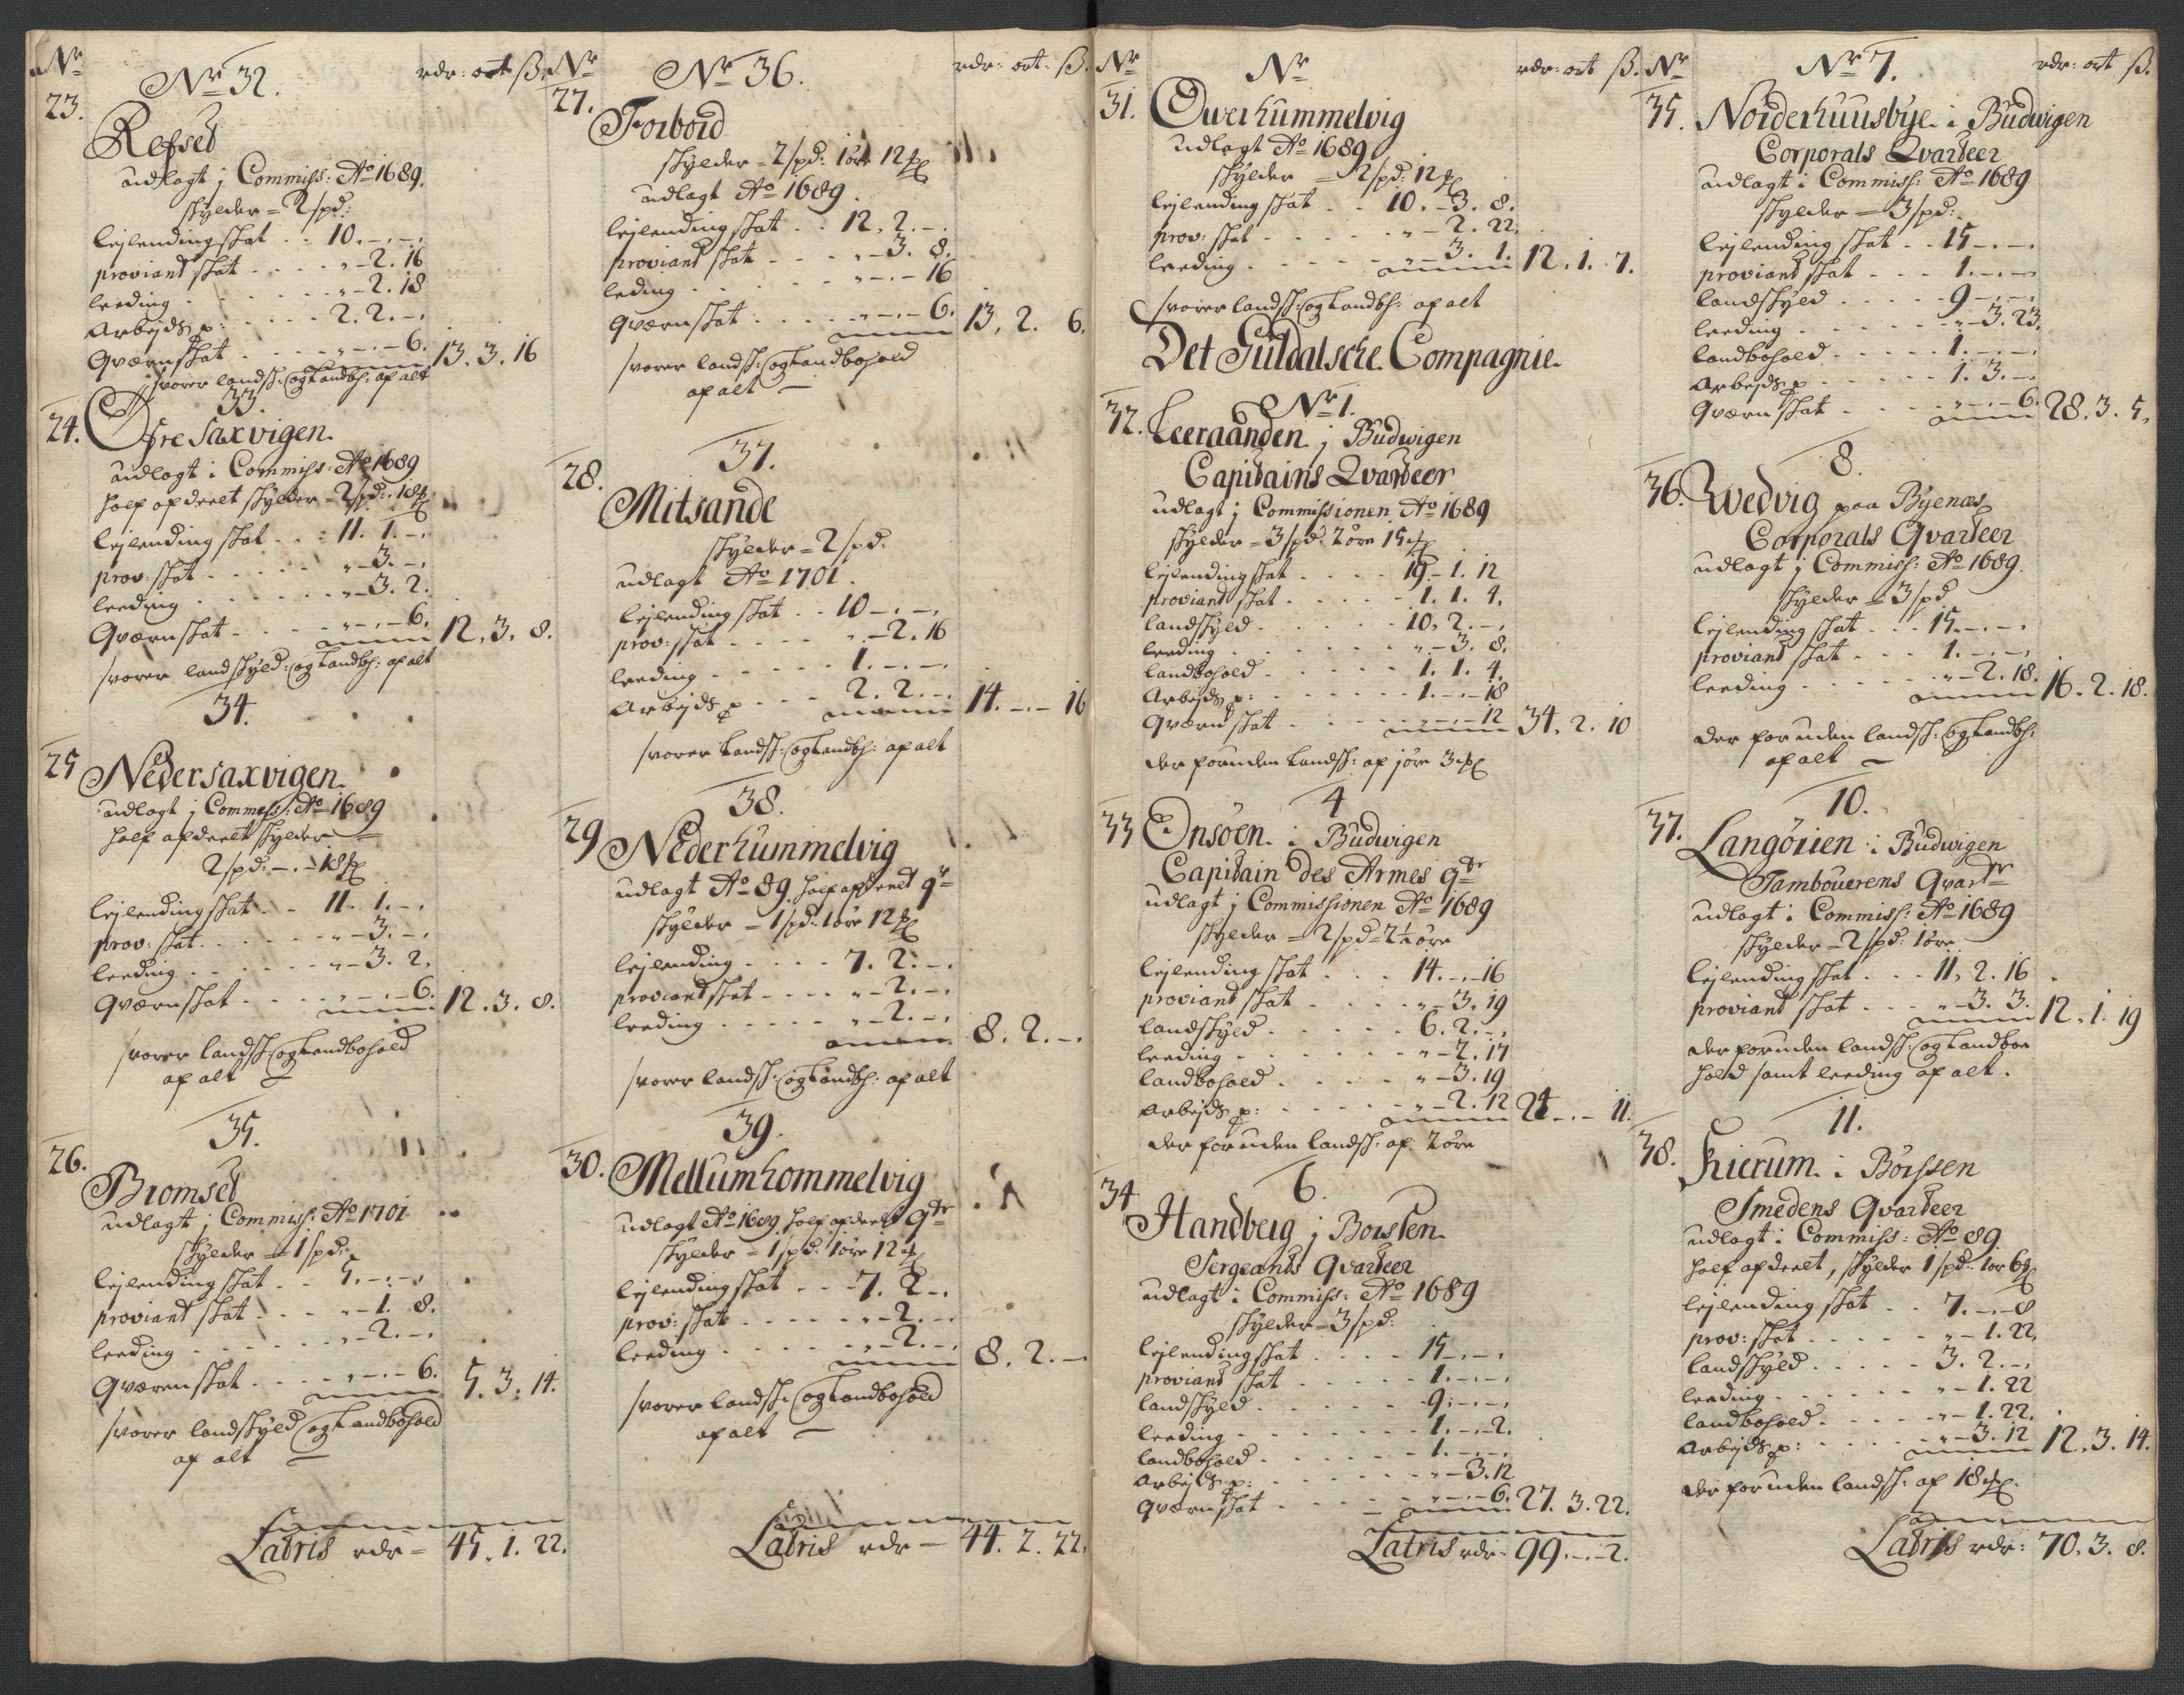 Nr
Nr 32. rdr: ort ß.
23.
Refset
udlagt j Commiss: Ao 1689.
skylder = 2 spd:
lejlending skat . . 10. - . - .
proviant skat . . . . „ - 2. 16
leeding . . . . . „ - 2. 18
Arbejds p: . . . . 2. 2. - .
Qværnskat . . . . „ - . - 6. 13. 3. 16
svarer landsk: og landbh: af alt
33.
24. Øfre Saxvigen.
udlagt i Commiss: Ao 1689
half afdeelt skylder = 2 spd: 18 mk
lejlending skat . . : 11. 1. - .
prov: skat . . . . . „ - 3. - .
leeding . . . . . . „ - 3. 2.
Qværnskat - . . . „ - . - 6. 12. 3. 8.
svarer landskyld: og landbh: af alt
34.
25 Neder saxvigen.
udlagt j Commiss: Ao 1689
half afdeelt skylder =
2 spd: - . - 18 mk
lejlending skat . . 11. 1. - .
prov: skat . . . . . . „ - 3. - .
leeding . . . . . . „ - 3. 2.
Qværnskat . . . . „ - . - 6. 12. 3. 8.
svarer landsk: og landbohold
af alt —
35.
26. Bromset
udlagt j Commiss: Ao 1701
skylder = 1 spd:
lejlending skat . . 5. - . - .
proviant skat . . . „ - 1. 8.
leeding . . . . . „ - 2. - .
Qværenskat . . . . „ - . - 6. 5. 3. 14.
svarer landskyld og landbohold
af alt —
Latris rdr = 45. 1. 22.
Nr
Nr 36. rdr: ort: ß.
27. Forbord
skylder = 2 spd: 1 øre 12 mk
udlagt Ao 1689.
lejlending skat . . 12. 2. - .
proviant skat . . . „ - 3. 8.
leding . . . . . . „ - . - 16
Qværnskat . . . . „ - . - 6. 13. 2. 6.
svarer landsk: og landbohold
af alt —
37.
28. Mitsande
skylder = 2 spd.
udlagt Ao 1701.
lejlending skat . . 10 - . - .
prov: skat . . . . „ - 2. 16
leeding . . . . . 1. - . - .
Arbejds p . . . . 2. 2. - . 14. - . - 16
svarer landsk: og landbh: af alt
38.
29 Neder hummelvig
udlagt Ao 89. half afdeelt qr
skylder = 1 spd: 1 øre 12 mk
lejlending . . . . 7. 2. - .
proviant skat . . . . „ - 2. - .
leeding . . . . . „ - 2. - . 8. 2. - .
svarer landsk: og landbh: af alt
39.
30. Mellum hommelvig
udlagt Ao 1689. half afdeelt qtr
skylder = 1 spd: 1 øre 12 mk
lejlending skat . . - 7. 2 - .
prov: skat . . . . . „ - 2. - .
leeding . . . . . „ - 2. - . 8. 2. -
svarer landsk: og landbohold
af alt —
Latris rdr — 44. 2. 22.
Nr
Nr rdr: ort ß.
31. Ower hummelvig
udlagt Ao 1689
skylder = 2 spd: 12 mk
lejlending skat . . 10. - 3. 8.
prov: skat . . . . . „ - 2. 22.
leeding . . . . . „ - 3. 1. 12. 1. 7.
svarer landsk: og landbh: af alt
Det Guldalsche Compagnie.
Nr 1.
32. Leeraanden j Budwigen
Capitains Qvarteer
udlagt j Commissionen Ao 1689
skylder = 3 spd: 2 øre 15 mk
lejlending skat . . . . 19 - 1. 12
proviant skat . . . . . 1. 1. 4.
landskyld . . . . . 10. 2. - .
leeding . . . . . . . „ - 3. 8.
landbohold . . . . . 1. 1. 4.
Arbejds p: . . . . . . 1. - . - 18
Qværn skat . . . . „ - . - 12 34. 2. 10
der foruden landsk: af j øre 3 mk
4
33 Onsöen i Budwigen
Capitain des Armes qtr
udlagt j Commissionen Ao 1689
skylder = 2 spd = 2½ øre
lejlending skat . . . 14. - . - 16
proviant skat . . . . „ - 3. 19
landskyld . . . . . 6. 2. - .
leeding . . . . . . „ - 2. 17
landbohold . . . . „ - 3. 19
Arbejds p: . . . . . „ - 2. 12 24 - . - 11.
der foruden landsk: af 2 øre
6.
34 Handberg j Borssen.
Sergeants Qvarteer
udlagt i Commiss: Ao 1689
skylder = 3 spd:
lejlending skat . . . . 15 - . - .
proviant skat . . . . . 1. - . - .
landskyld . . . . . . 9. - . - .
leeding . . . . . . . 1. - . - 2.
landbohold . . . . . . 1. - . - .
Arbejds p: . . . . . . „ - 3. 12
Qværnskat . . . . . „ - . - 6. 27. 3. 22.
Latris rdr. 99. - . - 2.
Nr
Nr 7. rdr: ort ß.
35. Norderhuusbye i Budwigen
Corporals Qvarteer
udlagt i Commiss: Ao 1689
skylder = 3 spd:
lejlending skat . . 15 - . - .
proviant skat . . . 1. - . - .
landskyld . . . . . 9 - . - .
leeding . . . . . . „ - 3. 23.
landbohold . . . . . 1. - . - .
Arbejds p . . . . . 1. 3. - .
Qværn skat . . . „ - . - 6. 28. 3. 5.
8.
36. Wedvig paa Byenæs
Corporals Qvarteer
udlagt j Commiss: Ao 1689.
skylder = 3 spd
lejlending skat . . . 15. - . - .
proviant skat . . . 1. - . - .
leeding . . . . . „ - 2. 18. 16. 2. 18.
der foruden landsk: og landbh:
af alt —
10.
37. Langörien i Budwigen
Tambouerens Qvartr
udlagt i Commiss: Ao 1689
skylder = 2 spd: 1 øre
lejlending skat . . . 11. 2. 16
proviant skat . . . „ - 3. 3. 12. 1. 19
der foruden landsk: og landboe
hold samt leeding af alt.
11.
38. Kierum i Börssen
Smedens Qvarteer
udlagt i Commiss: Ao 89
half afdeelt, skylder 1 spd: 1 ør 6 mk
lejlending skat . . 7. - . - 8
prov: skat . . . . . „ - 1. 22.
landskyld . . . . . 3. 2. - .
leeding . . . . . . „ - 1. 22
landbohold . . . . „ - 1. 22.
Arbejds p: . . . . „ - 3. 12 12. 3. 14.
der foruden landsk: af 18 mk.
Latris rdr: 70. 3. 8.